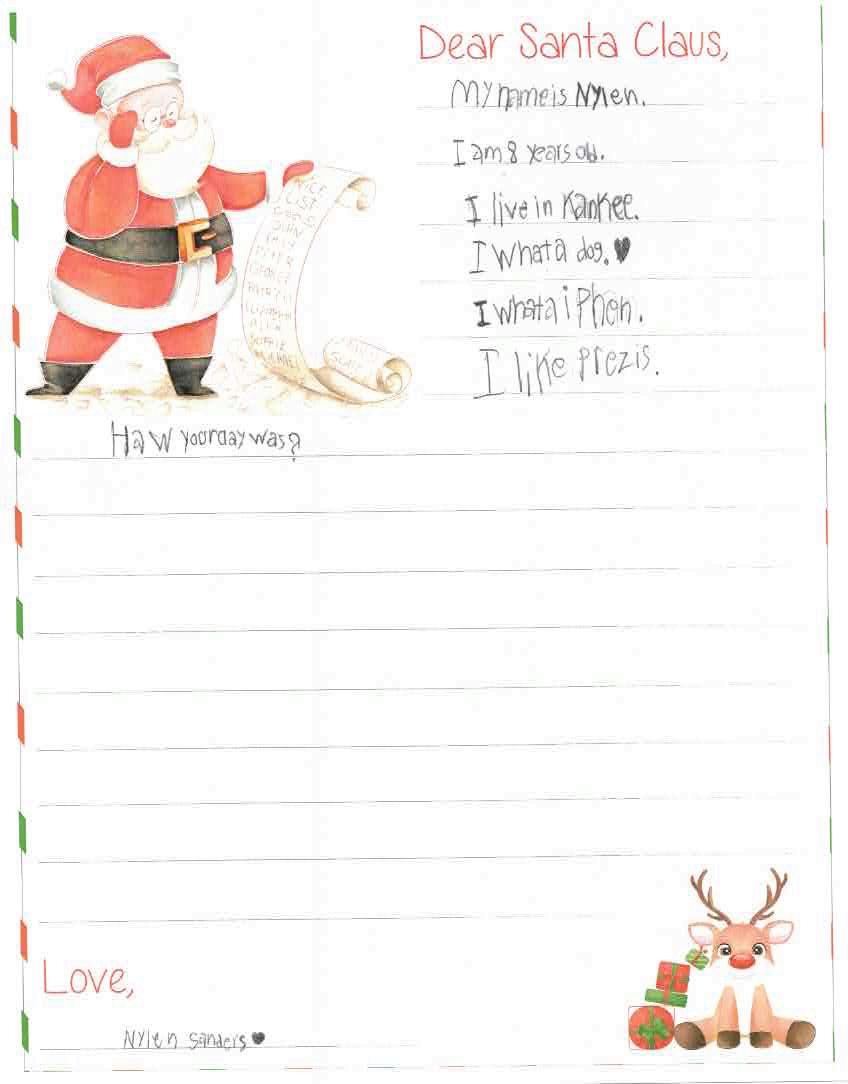 Dear Santa Claus,
My name is Nylen.
I am 8 years old.
I live in Kankee.
I what a dog.♥
I what a iPhon.
I like Prezis.
NICE
LIST
JOHN
PETER
GEORGE
Haw your day was?
Love,
Nylen Sanders♥